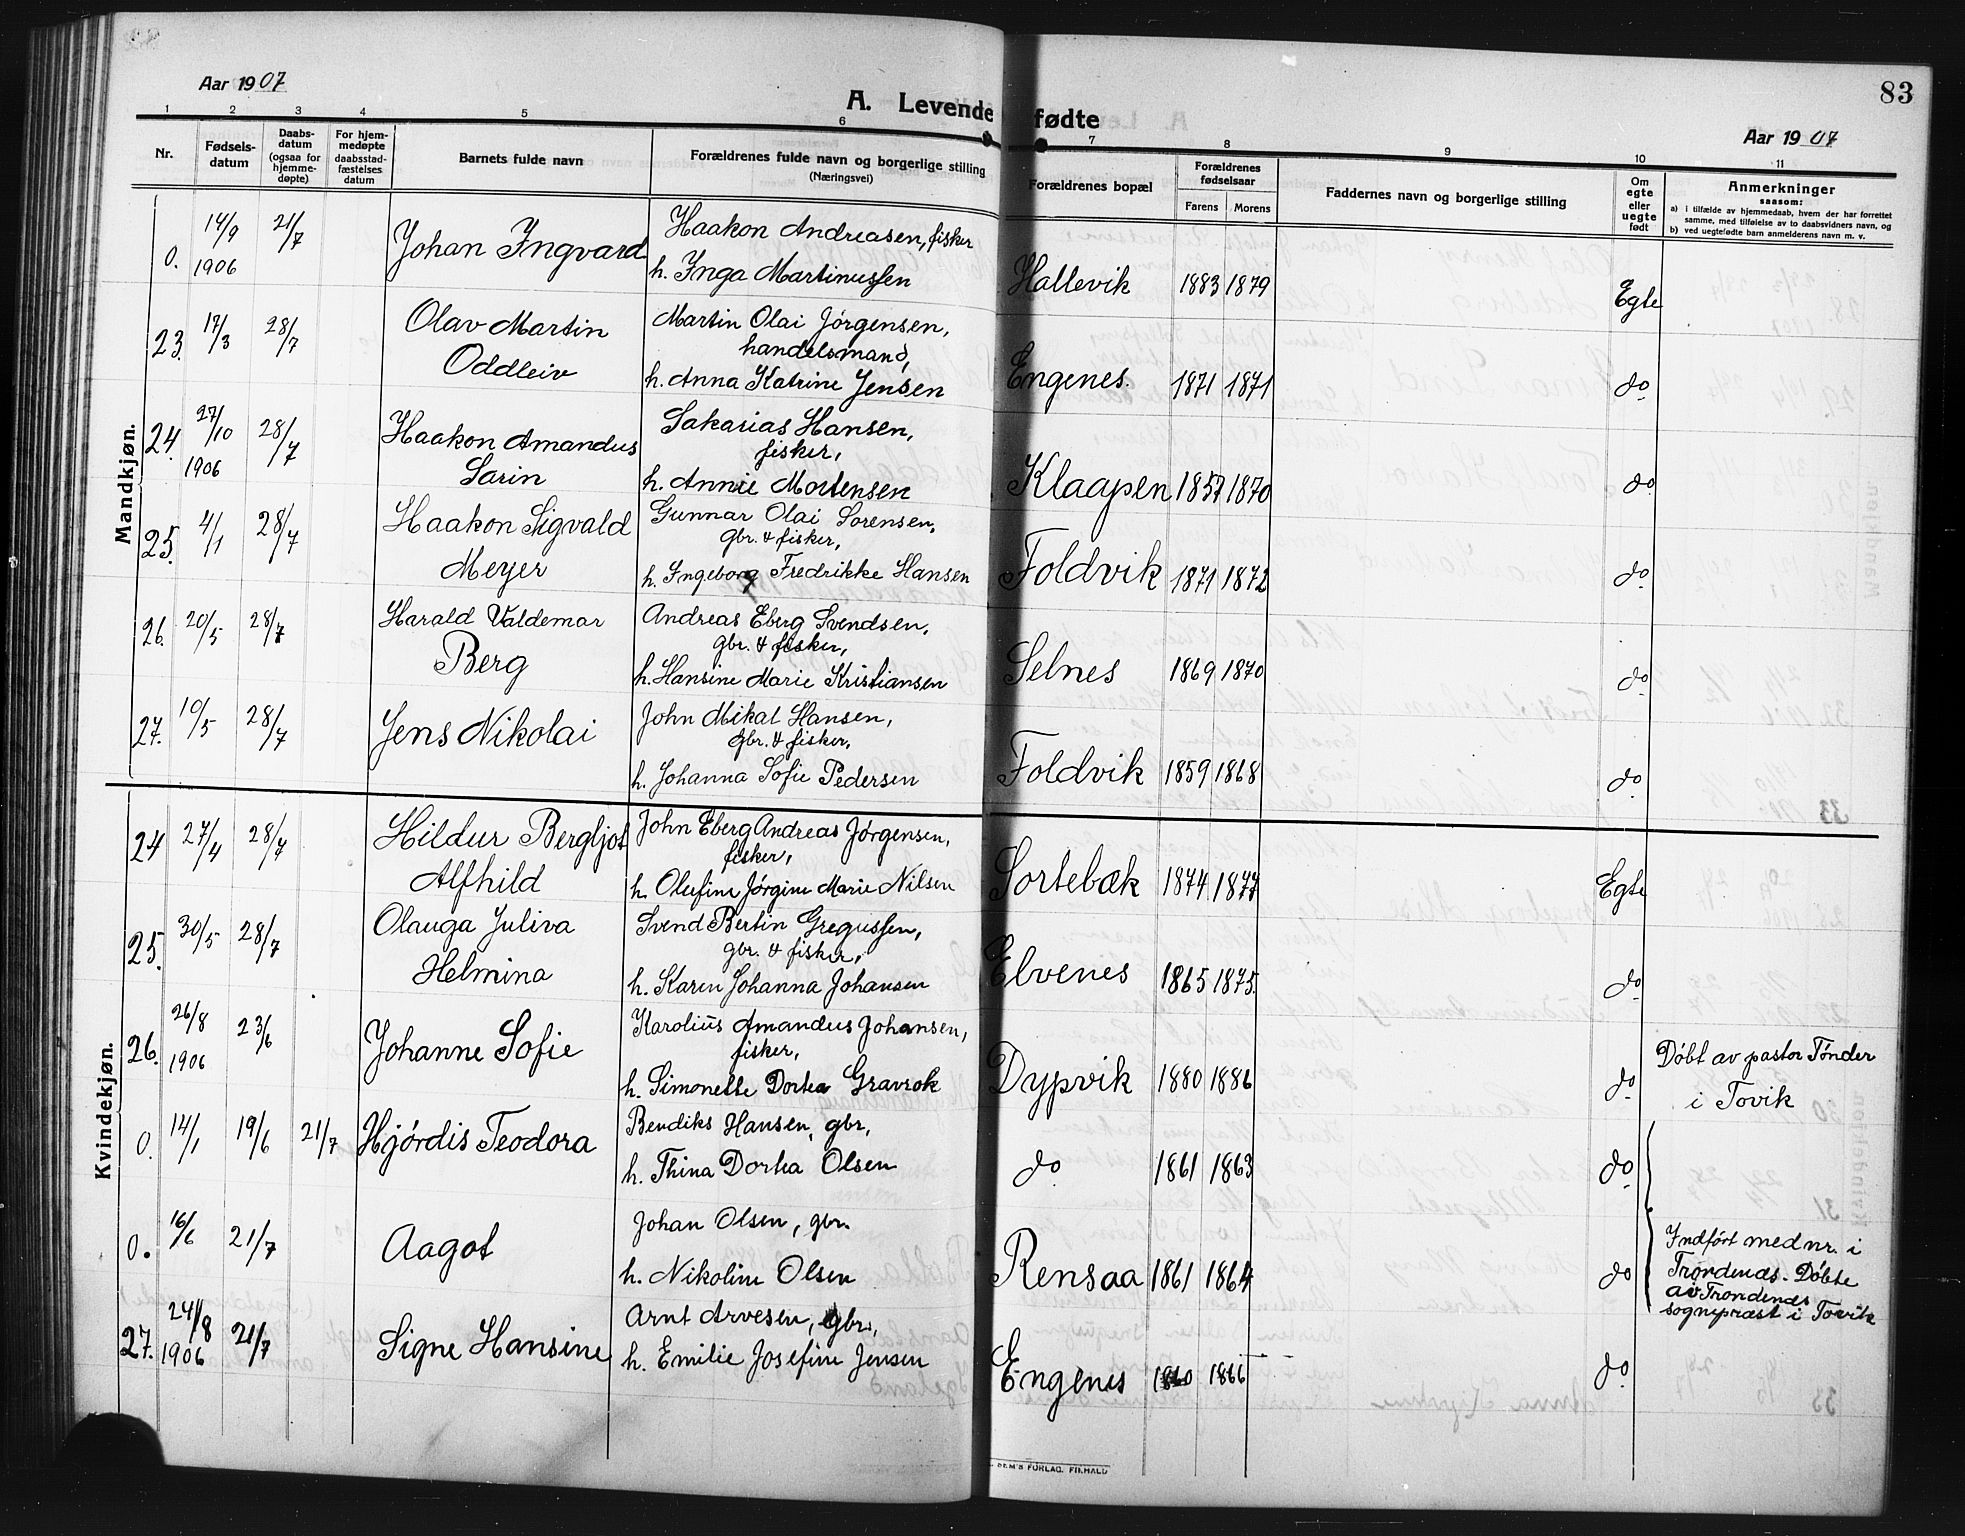 83
Aar 1907
A. Levende fødte
Aar 1907
1 2 3 4 5 6 7 8 9 10 11
Nr.
Fødsels-
datum
Daabs-
datum
(ogsaa for
hjemme-
døpte)
For hjem-
medøpte
daabsstad-
fæstelses
datum
Barnets fulde navn
Forældrenes fulde navn og borgerlige stilling
(Næringsvei)
Forældrenes bopæl
Forældrenes
fødselsaar
Farens Morens
Faddernes navn og borgerlige stilling
Om
egte
eller
uegte
født
Anmerkninger
saasom:
a) i tilfælde av hjemmedaab, hvem der har forrettet
samme, med tilføielse av to daabsvidners navn, og
b) ved uegtefødte barn anmelderens navn m. v.
Mandkjøn.
0. 14/9 1906 21/7 Johan Ingvard
Haakon Andreasen, fisker
h. Inga Martinussen
Hallevik 1883 1879 Egte
23. 17/3 28/7 Olav Martin
Oddleiv
Martin Olai Jørgensen,
handelsmand,
h. Anna Katrine Jensen
Engenes. 1871 1871 do
24. 27/10 1906 28/7 Haakon Amandus
Sarin
Sakarias Hansen,
fisker,
h. Annie Mortensen
Klaapen 1857 1870 do
25. 4/1 28/7 Haakon Sigvald
Meyer
Gunnar Olai Sorensen,
gbr. & fisker,
h. Ingeborg Fredrikke Hansen
Foldvik 1871 1872 do
26. 20/5 28/7 Harald Valdemar
Berg
Andreas Eberg Svendsen,
gbr. & fisker,
h. Hansine Marie Kristiansen
Selnes 1869 1870 do
27. 10/5 28/7 Jens Nikolai
John Mikal Hansen,
gbr. & fisker,
h. Johanna Sofie Pedersen
Foldvik 1859 1868 do
Kvindekjøn.
24 27/4 28/7 Hildur Bergljot
Alfhild
John Eberg Andreas Jørgensen,
fisker,
h. Olufine Jørgine Marie Nilsen
Sortebæk 1874 1877 Egte
25. 30/5 28/7 Olauga Juliva
Helmina
Svend Bertin Gregussen,
gbr. & fisker,
h. Karen Johanna Johansen
Elvenes 1865 1875. do
26. 26/8 1906 23/6 Johanne Sofie
Karolius Amandus Johansen,
fisker,
h. Simonette Dortea Gravrok
Dypvik 1880 1886 do
Døbt av pastor Tønder
i Tovik
0. 14/1 19/6 21/7 Hjørdis Teodora
Bendiks Hansen, gbr,
h. Thina Dortea Olsen
do 1861 1863 do
0. 16/6 21/7 Aagot
Johan Olsen, gbr.
h. Nikoline Olsen
Rensaa 1861 1864 do
Indført med nr. i
Trondenæs. Døbte
av Trondenes
sognepræst i Tovik
27. 24/8 1906 21/7 Signe Hansine
Arnt Arvesen, gbr.,
h. Emilie Josefine Jensen
Engenes 1860 1866 do
FORLAG. FR.HALD